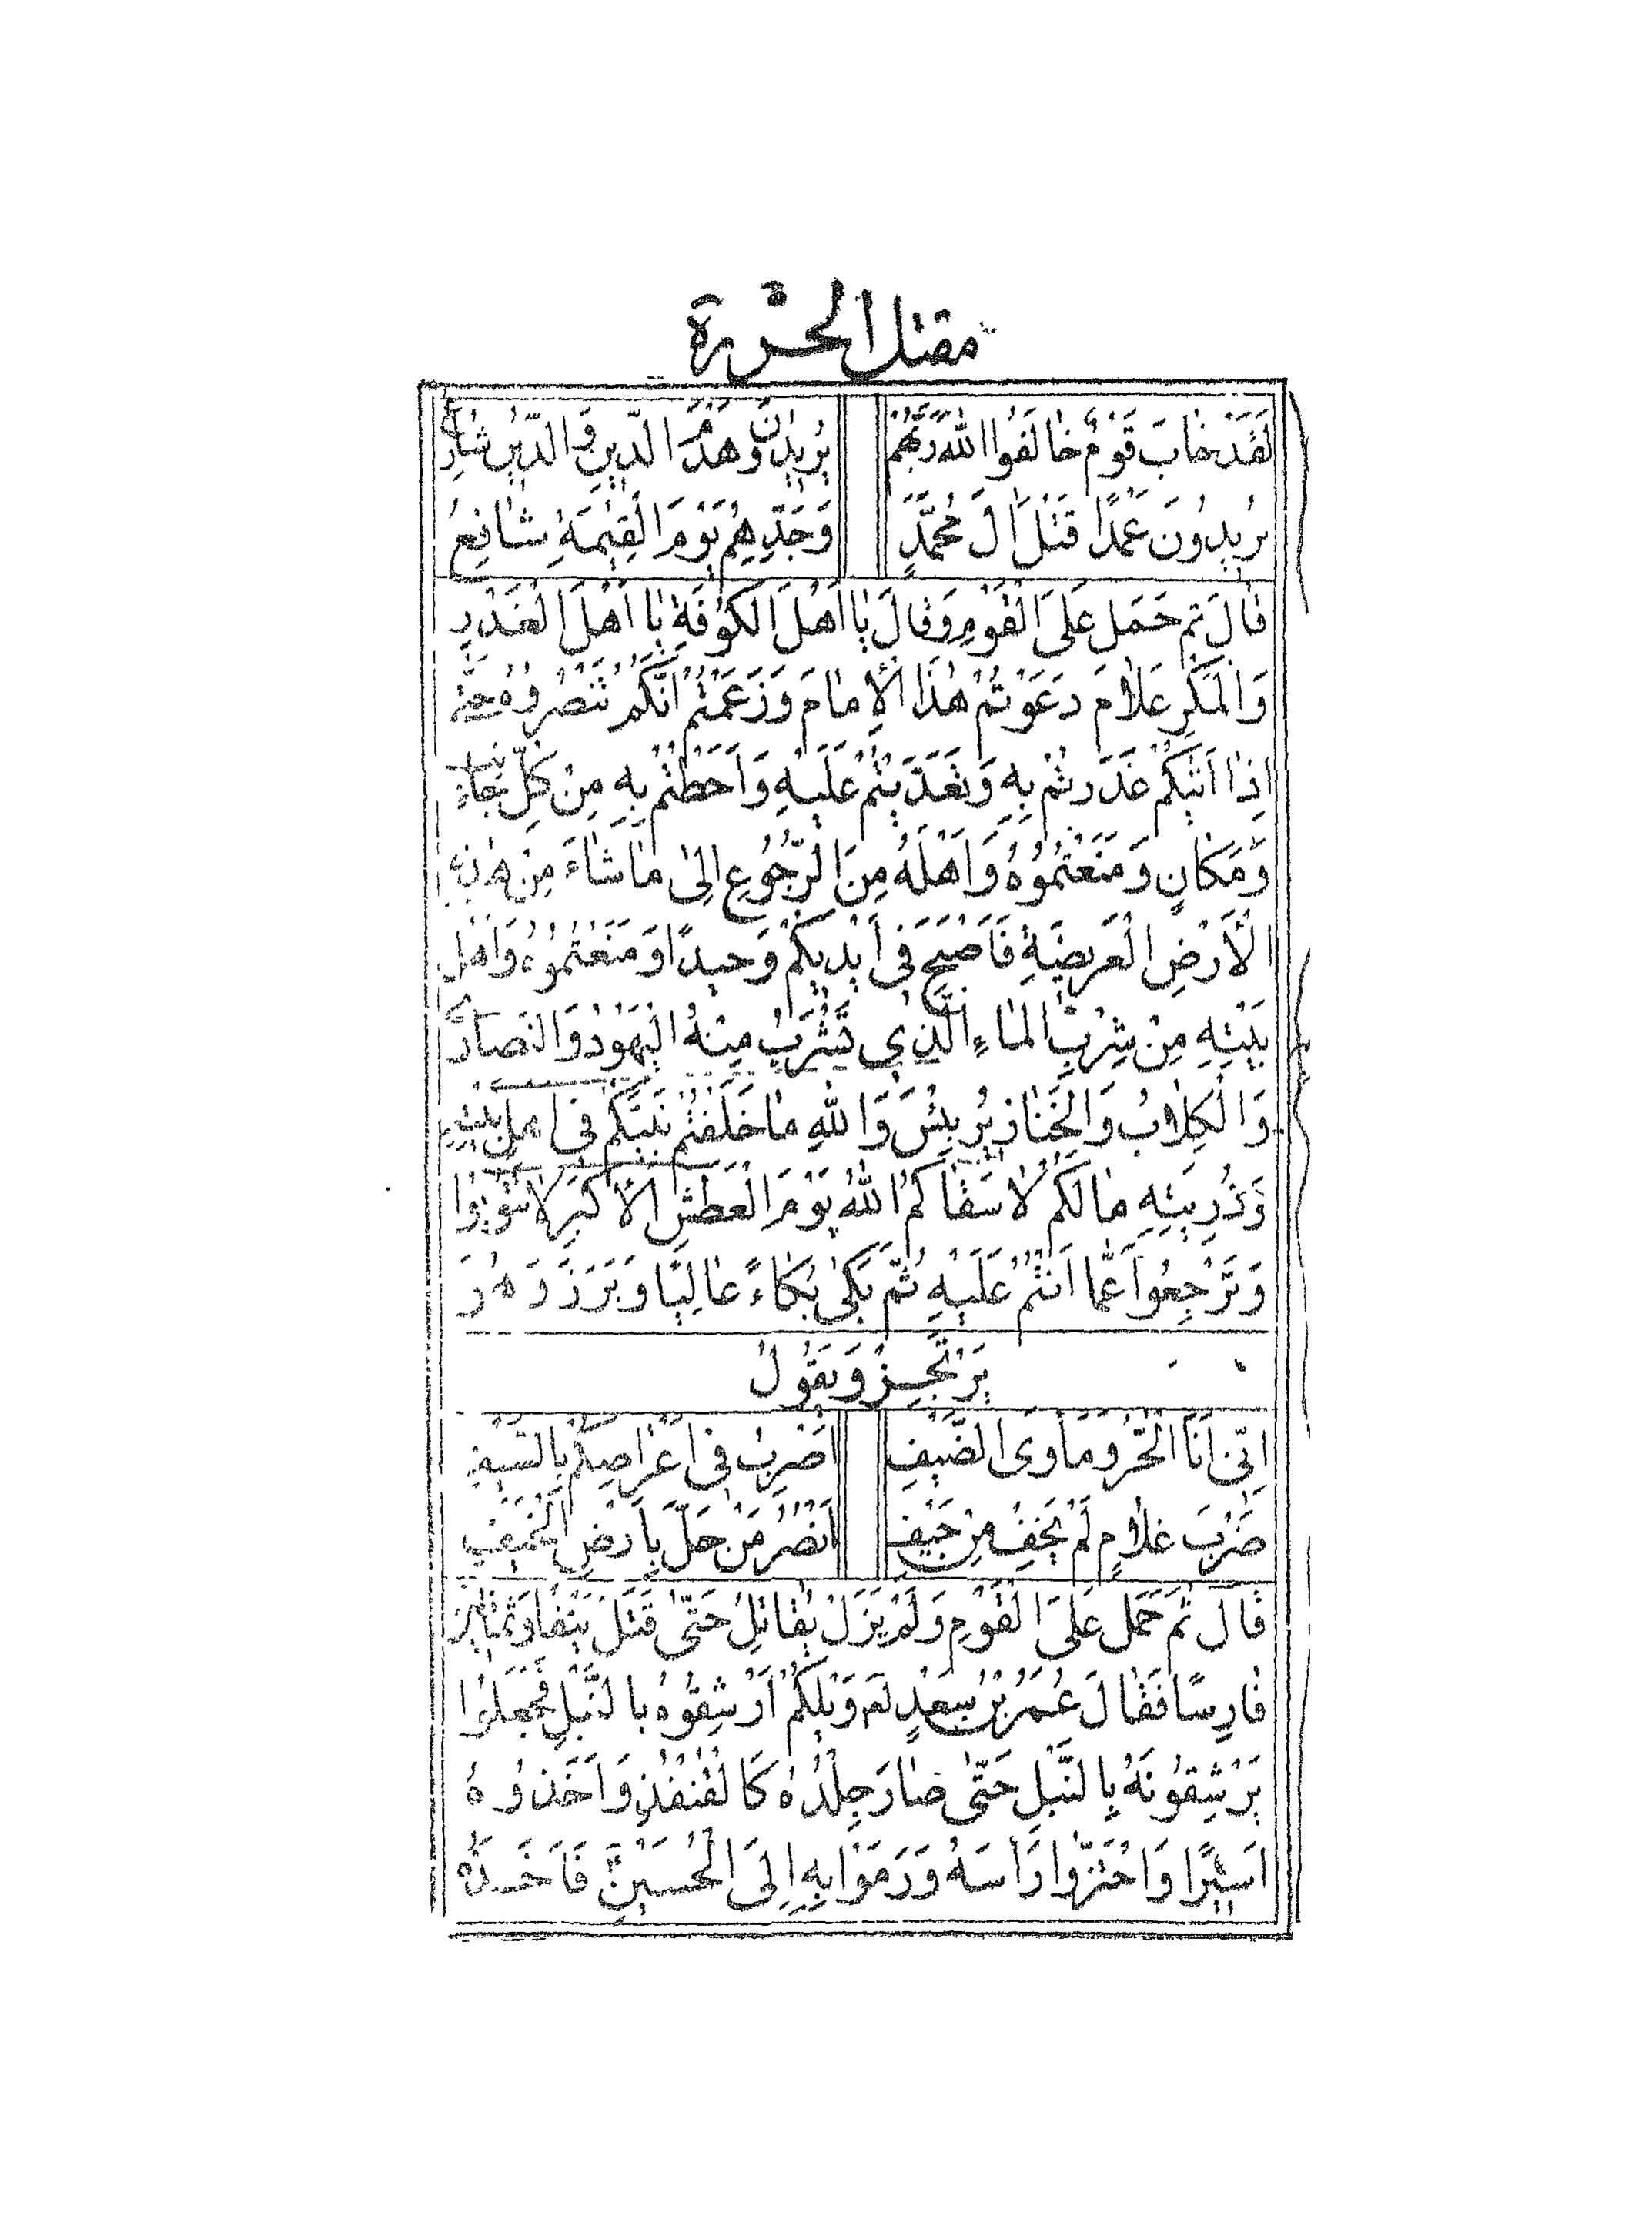 مقتل الحر ره
لَقَدْ خَابَ قَوْمٌ خَالَفُوا اللهَ رَبَّهُمْ يُرِيدُونَ هَدْمَ الدِّينِ وَالدِّينُ شَارِعُ
يُرِيدُونَ عَمْدًا قَتْلَ آلَ مُحَمَّدٍ وَجَدِّهِمْ يَوْمَ الْقِيٰمَةِ شَافِعُ
قَالَ ثم حَمَلَ عَلَى الْقَوْمِ وَقَالَ يَا اَهْلَ الْكُوفَةِ يَا اَهْلَ الْغَدْرِ
وَالْمَكْرِ عَلَامَ دَعَوْتُمْ هٰذَا الْاِمَامَ وَزَعَمْتُمْ اَنَّكُمْ تَنْصُرُوهُ حَتّٰى
اِذَا اَتٰيكُمْ غَدَرتُمْ بِهِ وَتَعَدَّيْتُمْ عَلَيْهِ وَاَحَطْتُمْ بِهِ مِنْ كُلِّ جَانِبٍ
وَمَكَانٍ وَمَنَعْتُمُوهُ وَاَهْلَهُ مِنَ الرُّجُوعِ اِلىٰ مَا شَاءَ مِنْ هٰذِهِ
الْأَرْضِ الْعَرِيضَةِ فَاَصْبَحَ فِى اَيْدِيكُمْ وَحِيدًا وَمَنَعْتُمُوهُ وَاَهْلَ
بَيْتِهِ مِنْ شِرْبِ الْمَاءِ الَّذِى تَشْرَبُ مِنْهُ الْيَهُودُ وَالنَّصَارٰى
وَالْكِلَابُ وَالْخَنَازِيرُ بِئْسَ وَاللهِ مَا خَلَفْتُمْ نَبِيَّكُمْ فِى اهل بَيْتِهِ
وَذُرِّيَتِهِ مَا لَكُمْ لَا سَقَاكُمُ اللهُ يَوْمَ الْعَطَشِ الْاَكْبَرِ لَا تَتُوبُوا
وَتَرْجِعُوا عَمَّا اَنْتُمْ عَلَيْهِ ثُمَّ بَكىٰ بُكَاءً عَالِيًا وَبَرَزَ وَهُوَ
يَرْتَجِزُ وَيَقُولُ
اِنِّى اَنَا الْحُرُّ وَمَأوَى الضَّيْفِ اَضْرِبُ فِى اَعْرَاضِكُمْ بِالسَّيْفِ
ضَرْبَ غُلَامٍ لَمْ يَخَفْ مِنْ حَيْفِ اَنْصُرُ مَنْ حَلَّ بِاَرْضِ الْخَيْفِ
قَالَ ثُمَّ حَمَلَ عَلَى الْقَوْمِ وَلَمْ يَزَلْ يُقَاتِلُ حَتّٰى قَتَلَ نَيْفًا وَثَمَانِينَ
فَارِسًا فَقَالَ عُمَرُ بْنُ سَعْدٍ لهم وَيْلَكُمْ اَرْشِقُوهُ بِالنَّبْلِ فَجَعَلُوا
يَرْشِقُونَهُ بِالنَّبْلِ حَتّٰى صَارَ جِلْدُهُ كَالْقُنْفُذِ وَاَخَذُوهُ
اَسِيرًا وَاحْتَزُّوا رَأسَهُ وَرَمَوْا بِهِ اِلَى الْحُسَيْنِ فَاَخَذَهُ